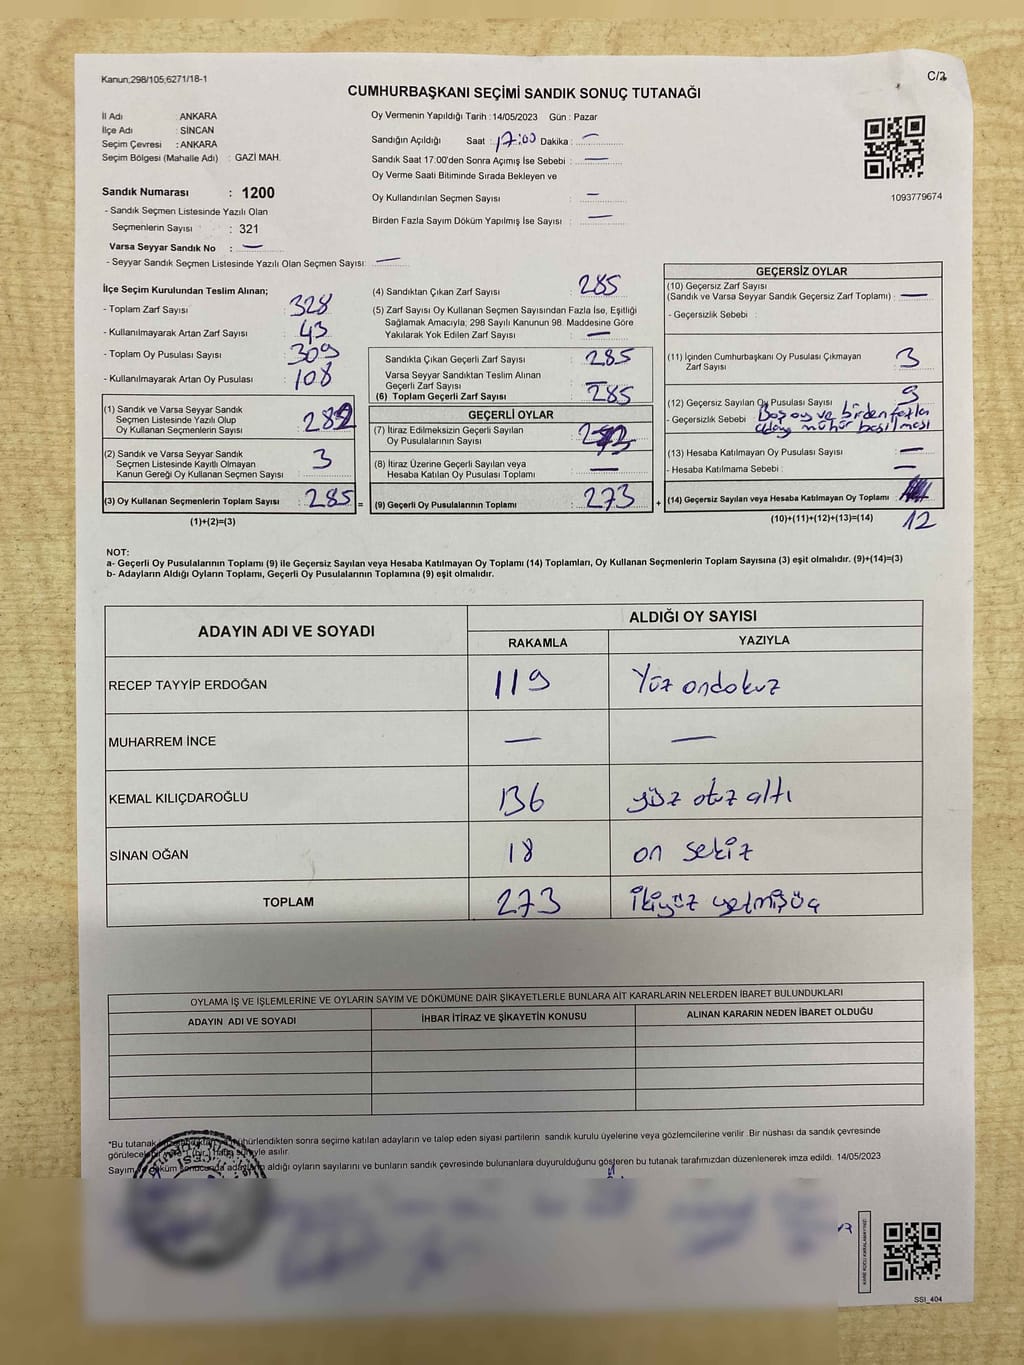 Kanun;298/105;6271/18-1
C/2
CUMHURBAŞKANI SEÇİMİ SANDIK SONUÇ TUTANAĞI
İl Adı : ANKARA
İlçe Adı : SİNCAN
Seçim Çevresi : ANKARA
Seçim Bölgesi (Mahalle Adı) : GAZİ MAH.
Sandık Numarası : 1200
- Sandık Seçmen Listesinde Yazılı Olan
Seçmenlerin Sayısı : 321
Varsa Seyyar Sandık No : —
- Seyyar Sandık Seçmen Listesinde Yazılı Olan Seçmen Sayısı: —
Oy Vermenin Yapıldığı Tarih :14/05/2023 Gün : Pazar
Sandığın Açıldığı Saat : 17:00 Dakika : —
Sandık Saat 17:00'den Sonra Açımış İse Sebebi : —
Oy Verme Saati Bitiminde Sırada Bekleyen ve
Oy Kullandırılan Seçmen Sayısı : —
Birden Fazla Sayım Döküm Yapılmış İse Sayısı : —
1093779674
İlçe Seçim Kurulundan Teslim Alınan;
- Toplam Zarf Sayısı : 328
- Kullanılmayarak Artan Zarf Sayısı : 43
- Toplam Oy Pusulası Sayısı : 309
- Kullanılmayarak Artan Oy Pusulası : 108
(1) Sandık ve Varsa Seyyar Sandık
Seçmen Listesinde Yazılı Olup
Oy Kullanan Seçmenlerin Sayısı : 282
(2) Sandık ve Varsa Seyyar Sandık
Seçmen Listesinde Kayıtlı Olmayan
Kanun Gereği Oy Kullanan Seçmen Sayısı : 3
(3) Oy Kullanan Seçmenlerin Toplam Sayısı : 285 =
(1)+(2)=(3)
(4) Sandıktan Çıkan Zarf Sayısı : 285
(5) Zarf Sayısı Oy Kullanan Seçmen Sayısından Fazla İse, Eşitliği
Sağlamak Amacıyla; 298 Sayılı Kanunun 98. Maddesine Göre
Yakılarak Yok Edilen Zarf Sayısı : —
Sandıkta Çıkan Geçerli Zarf Sayısı : 285
Varsa Seyyar Sandıktan Teslim Alınan
Geçerli Zarf Sayısı : —
(6) Toplam Geçerli Zarf Sayısı : 285
GEÇERLİ OYLAR
(7) İtiraz Edilmeksizin Geçerli Sayılan
Oy Pusulalarının Sayısı : 273
(8) İtiraz Üzerine Geçerli Sayılan veya
Hesaba Katılan Oy Pusulası Toplamı : —
(9) Geçerli Oy Pusulalarının Toplamı : 273 +
GEÇERSİZ OYLAR
(10) Geçersiz Zarf Sayısı
(Sandık ve Varsa Seyyar Sandık Geçersiz Zarf Toplamı) : —
- Geçersizlik Sebebi :
(11) İçinden Cumhurbaşkanı Oy Pusulası Çıkmayan
Zarf Sayısı : 3
(12) Geçersiz Sayılan Oy Pusulası Sayısı : 9
- Geçersizlik Sebebi : Boş oy ve birden fazla
adaya mühür basılması
(13) Hesaba Katılmayan Oy Pusulası Sayısı : —
- Hesaba Katılmama Sebebi : —
(14) Geçersiz Sayılan veya Hesaba Katılmayan Oy Toplamı :
(10)+(11)+(12)+(13)=(14) 12
NOT:
a- Geçerli Oy Pusulalarının Toplamı (9) ile Geçersiz Sayılan veya Hesaba Katılmayan Oy Toplamı (14) Toplamları, Oy Kullanan Seçmenlerin Toplam Sayısına (3) eşit olmalıdır. (9)+(14)=(3)
b- Adayların Aldığı Oyların Toplamı, Geçerli Oy Pusulalarının Toplamına (9) eşit olmalıdır.
ADAYIN ADI VE SOYADI
ALDIĞI OY SAYISI
RAKAMLA YAZIYLA
RECEP TAYYİP ERDOĞAN 119 Yüz ondokuz
MUHARREM İNCE — —
KEMAL KILIÇDAROĞLU 136 yüz otuz altı
SİNAN OĞAN 18 on sekiz
TOPLAM 273 İkiyüz yetmişüç
OYLAMA İŞ VE İŞLEMLERİNE VE OYLARIN SAYIM VE DÖKÜMÜNE DAİR ŞİKAYETLERLE BUNLARA AİT KARARLARIN NELERDEN İBARET BULUNDUKLARI
ADAYIN ADI VE SOYADI İHBAR İTİRAZ VE ŞİKAYETİN KONUSU ALINAN KARARIN NEDEN İBARET OLDUĞU
*Bu tutanak mühürlendikten sonra seçime katılan adayların ve talep eden siyasi partilerin sandık kurulu üyelerine veya gözlemcilerine verilir .Bir nüshası da sandık çevresinde
asılır.
Sayım aldığı oyların sayılarını ve bunların sandık çevresinde bulunanlara duyurulduğunu gösteren bu tutanak tarafımızdan düzenlenerek imza edildi. 14/05/2023
KARE KODU KARALAMAYINIZ!
SSI_404